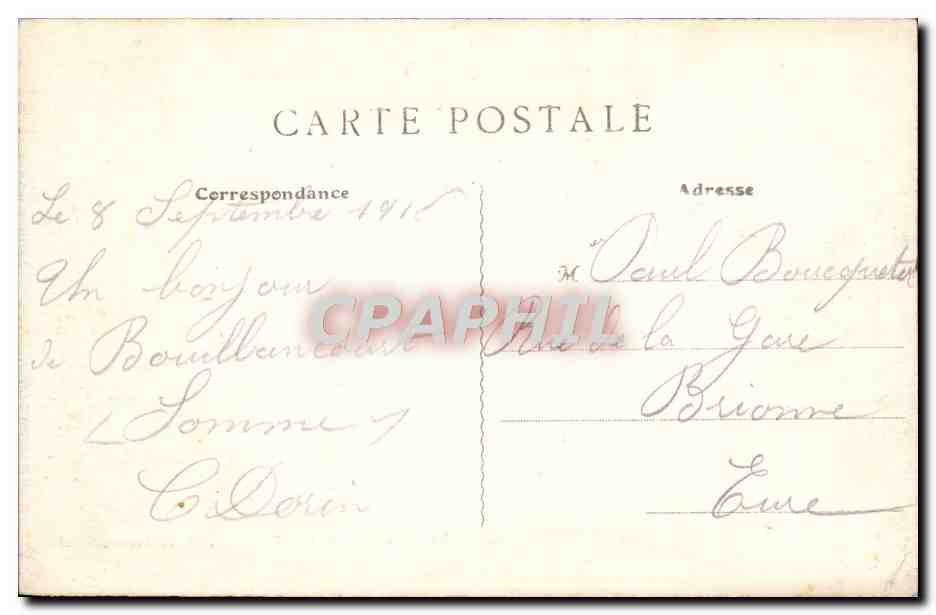 CARTE POSTALE
Correspondance
Le 8 Septembre
Un bonjour
de Bouillancourt
(Somme)
C. Dorin
Adresse
M Paul
Rue de la Gare
Brionne
Eure
CPAPHIL